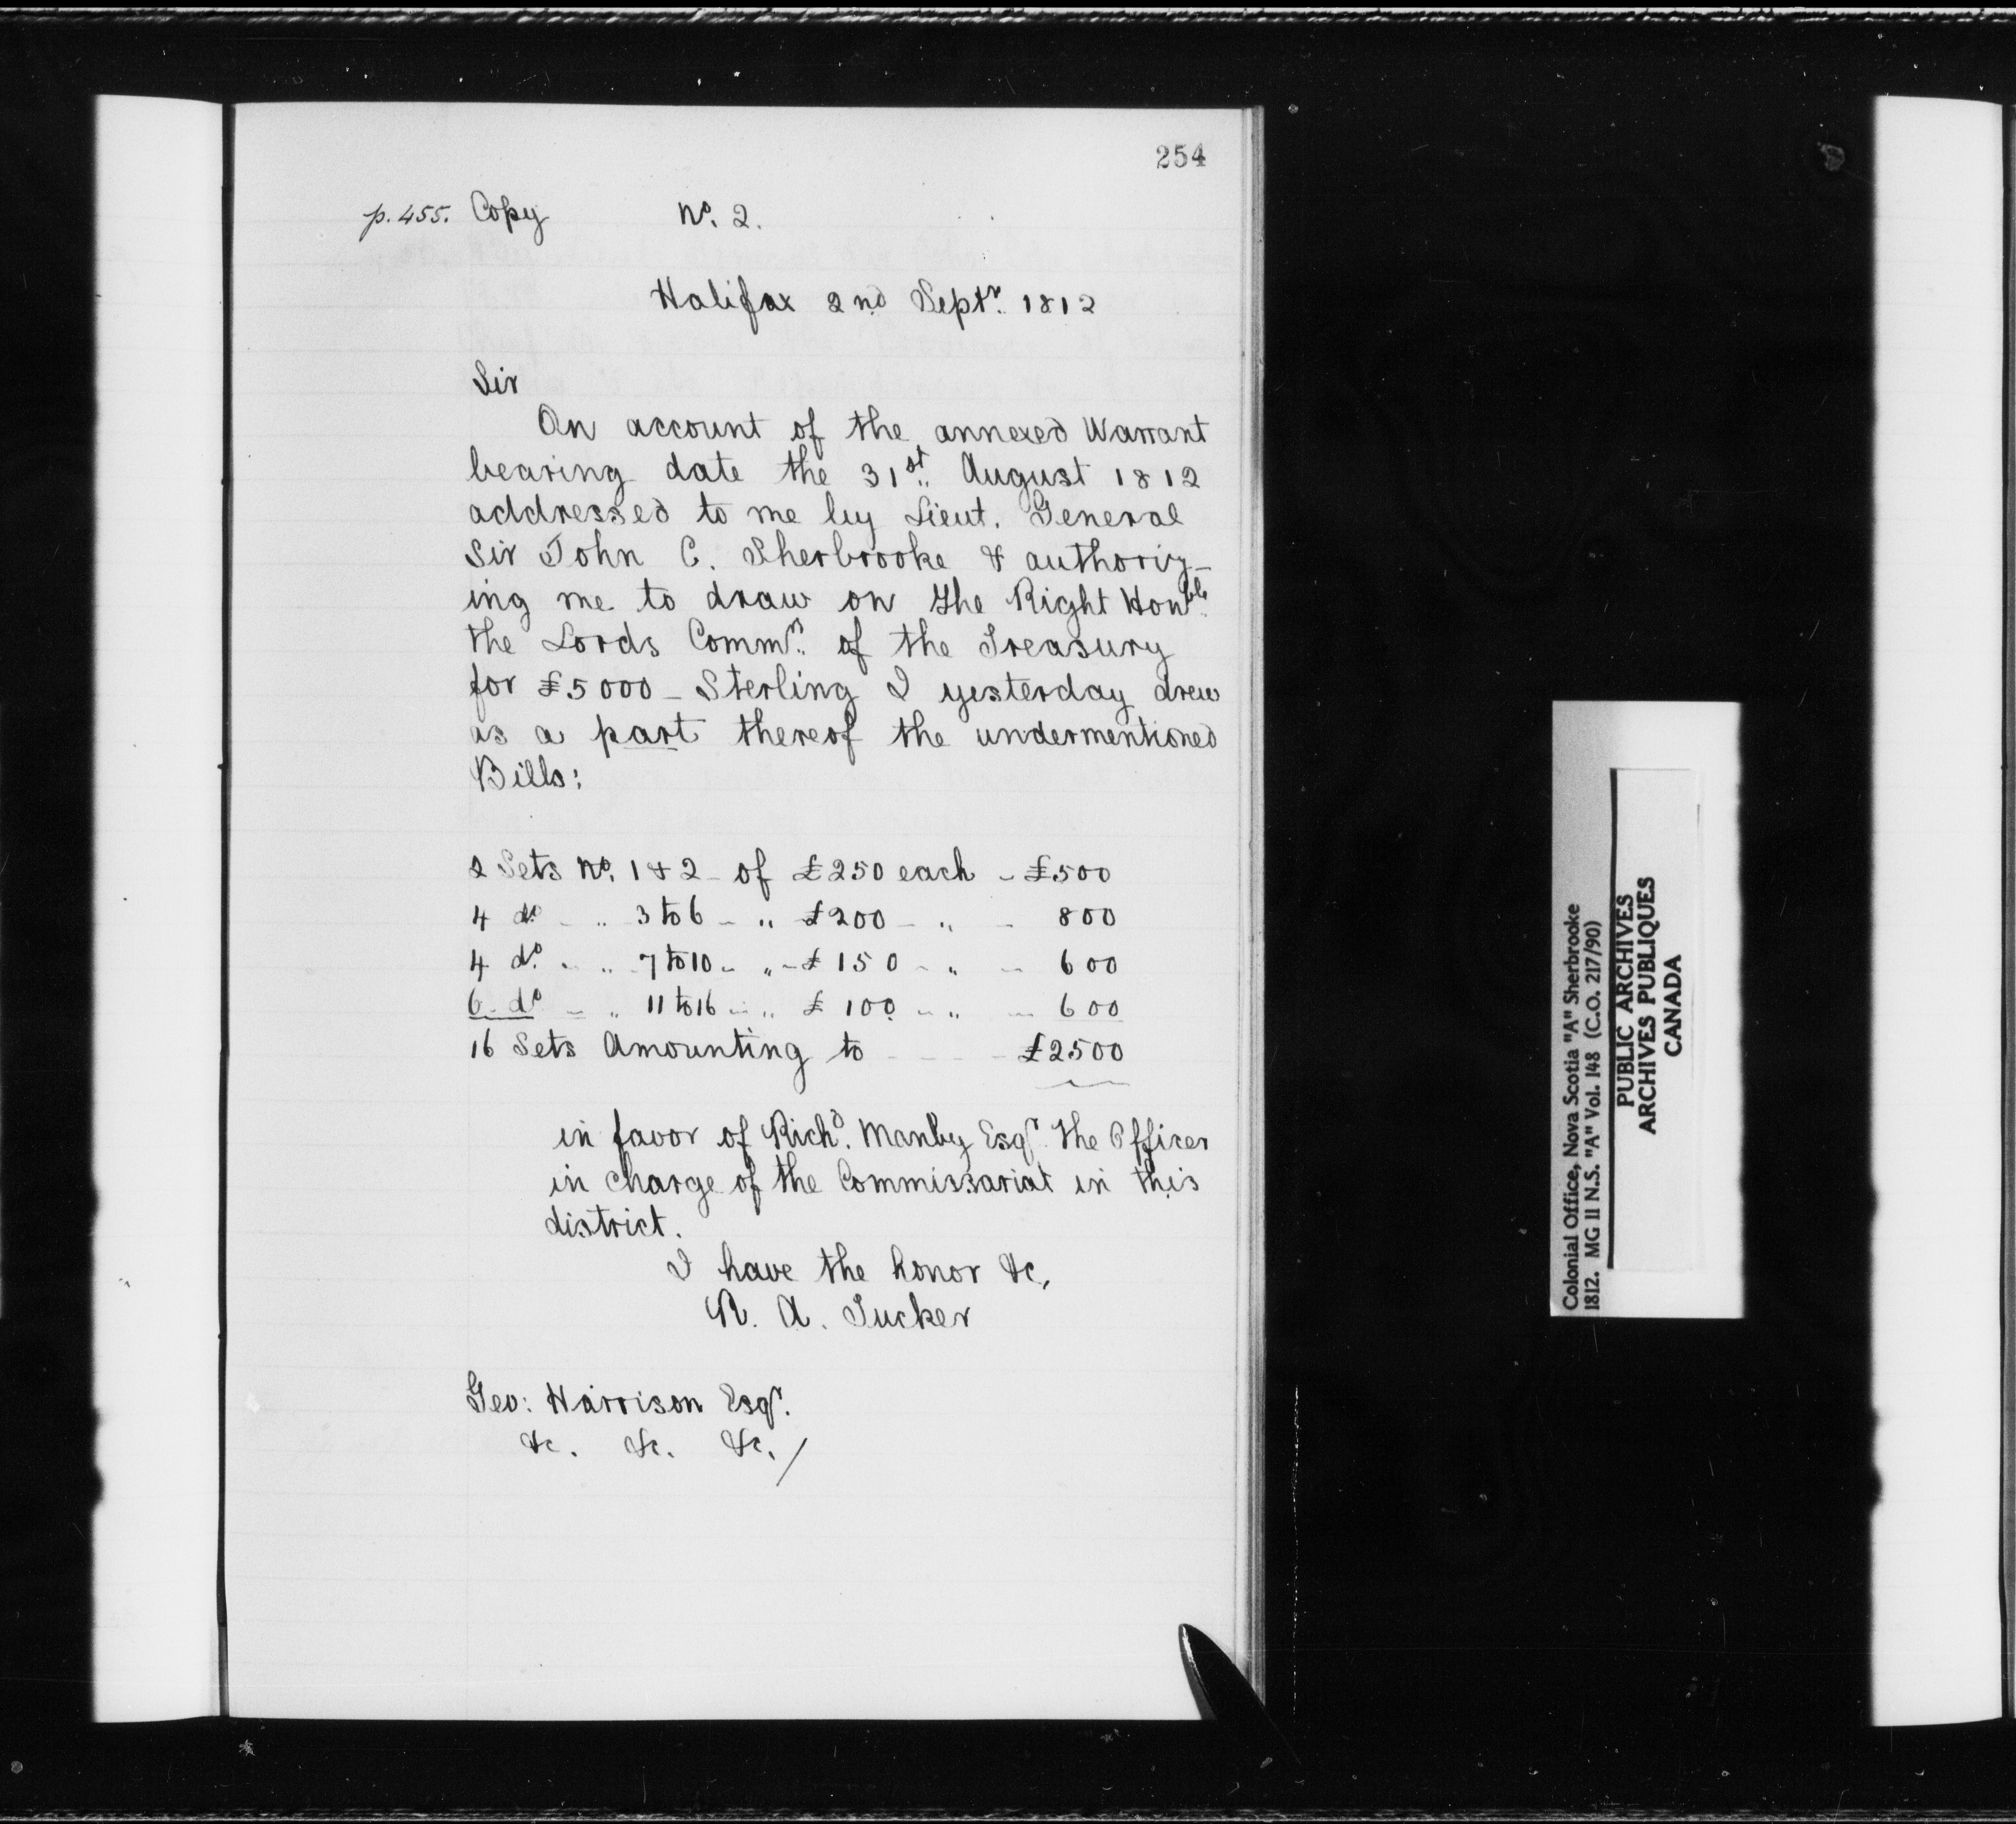 254
p. 455. Copy No. 2.
Halifax 2nd Septr. 1812
Sir
On account of the annexed Warrant
bearing date the 31st. August 1812
addressed to me by Lieut. General
Sir John C. Sherbrooke & authoriz-
ing me to draw on the Right Honble.
the Lords Commrs. of the Treasury
for £5000 - Sterling I yesterday drew
as a part thereof the undermentioned
Bills:
2 Sets No. 1 & 2 - of £250 each - £500
4 do. - " 3 to 6 - " £200 - " - 800
4 do. - " 7 to 10 - " - £150 - " - 600
6 do - " 11 to 16 - " £100 - " - 600
16 Sets Amounting to - - - - £2500
in favor of Richd. Manby Esqr. the Officer
in charge of the Commissariat in this
district.
I have the honor &c,
R. A. Tucker
Geo: Harrison Esqr.
&c. &c. &c. /
Colonial Office, Nova Scotia "A" Sherbrooke
1812. MG 11 N.S. "A" Vol. 148 (C.O. 217/90)
PUBLIC ARCHIVES
ARCHIVES PUBLIQUES
CANADA